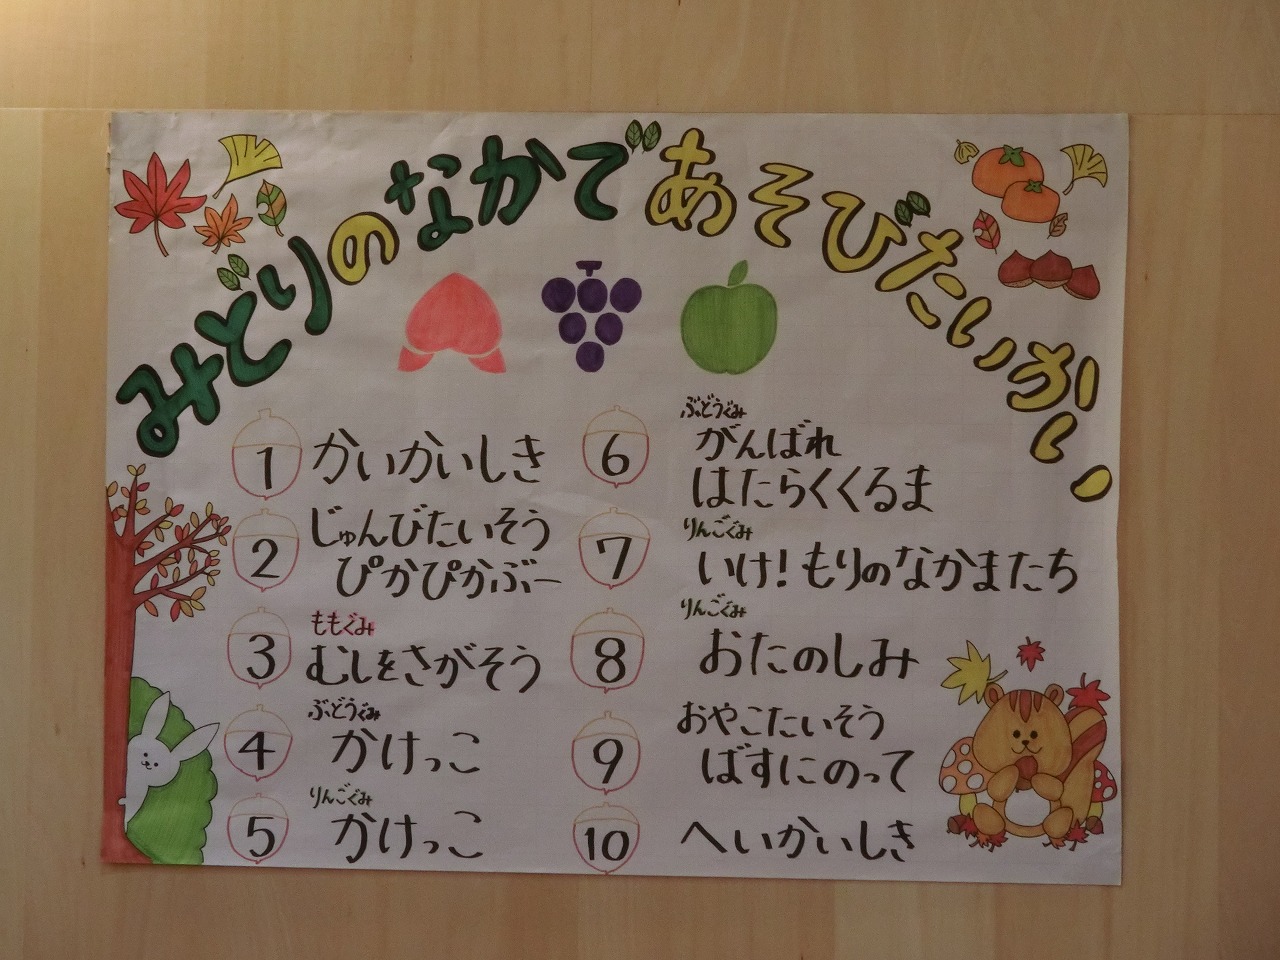 みどりのなかであそびたいかい
1 かいかいしき
2 じゅんびたいそう
ぴかぴかぶー
3 ももぐみ
むしをさがそう
4 ぶどうぐみ
かけっこ
5 りんごぐみ
かけっこ
6 ぶどうぐみ
がんばれ
はたらくくるま
7 りんごぐみ
いけ!もりのなかまたち
8 りんごぐみ
おたのしみ
9 おやこたいそう
ばすにのって
10 へいかいしき